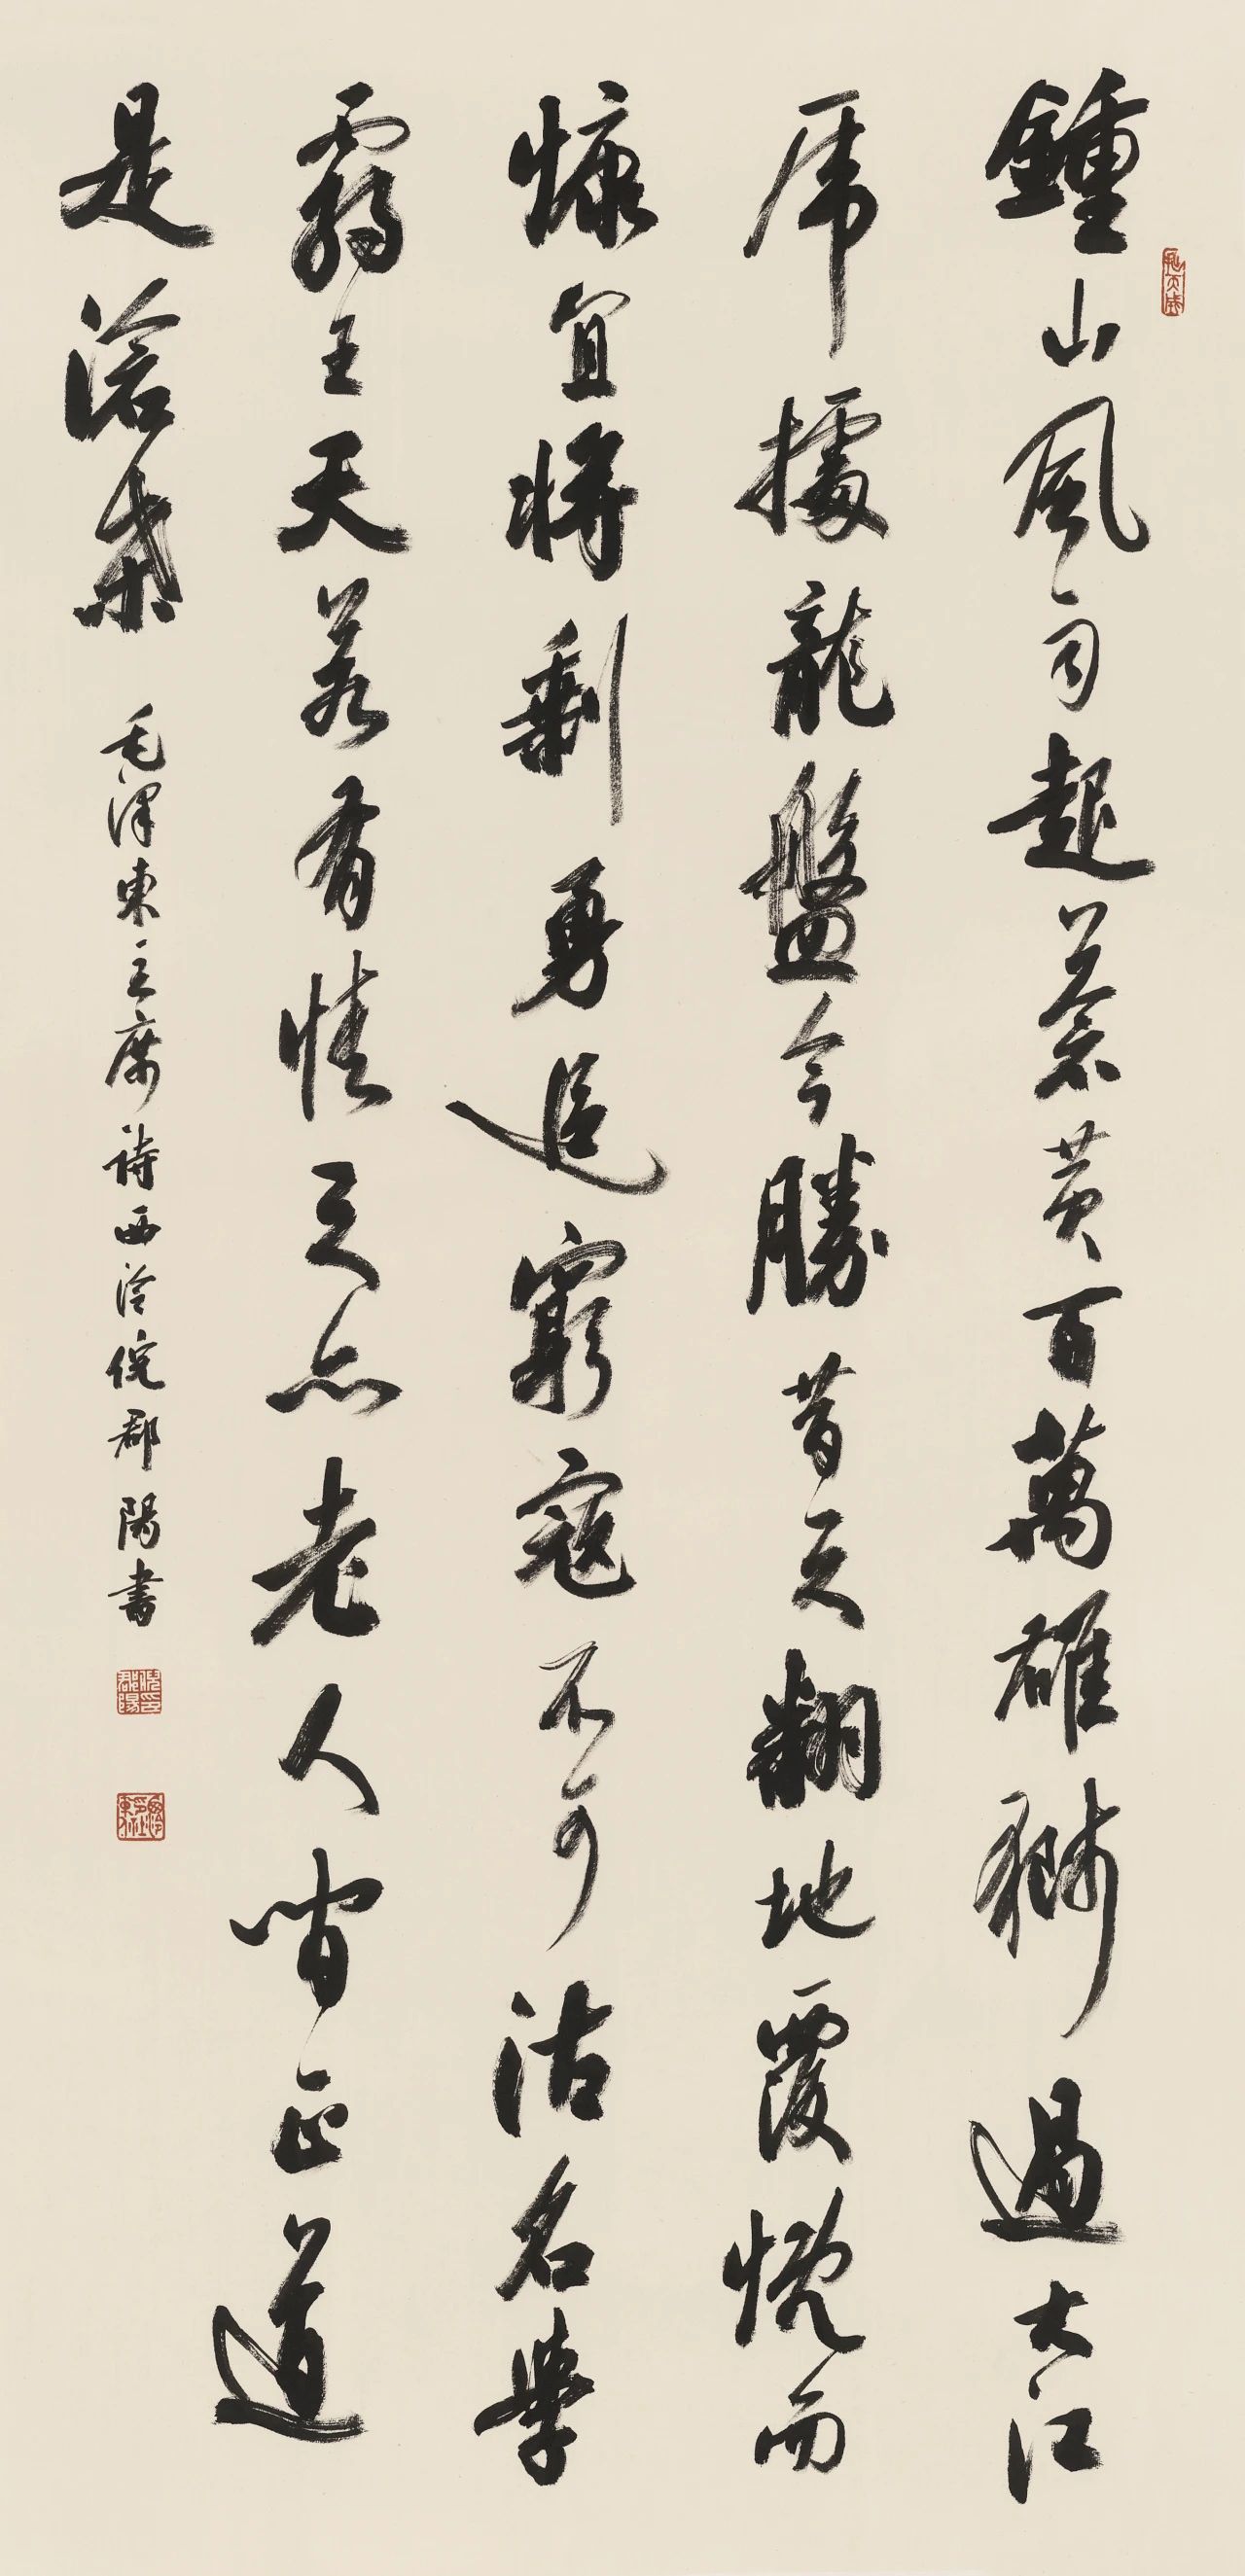 鍾山風雨起蒼黃百萬雄獅過大江
虎據龍盤今勝昔天翻地覆慨而
慷宜將剩勇追窮寇不可沽名學
霸王天若有情天亦老人間正道
是滄桑
毛澤東主席詩西泠倪郡陽書
倪印郡陽